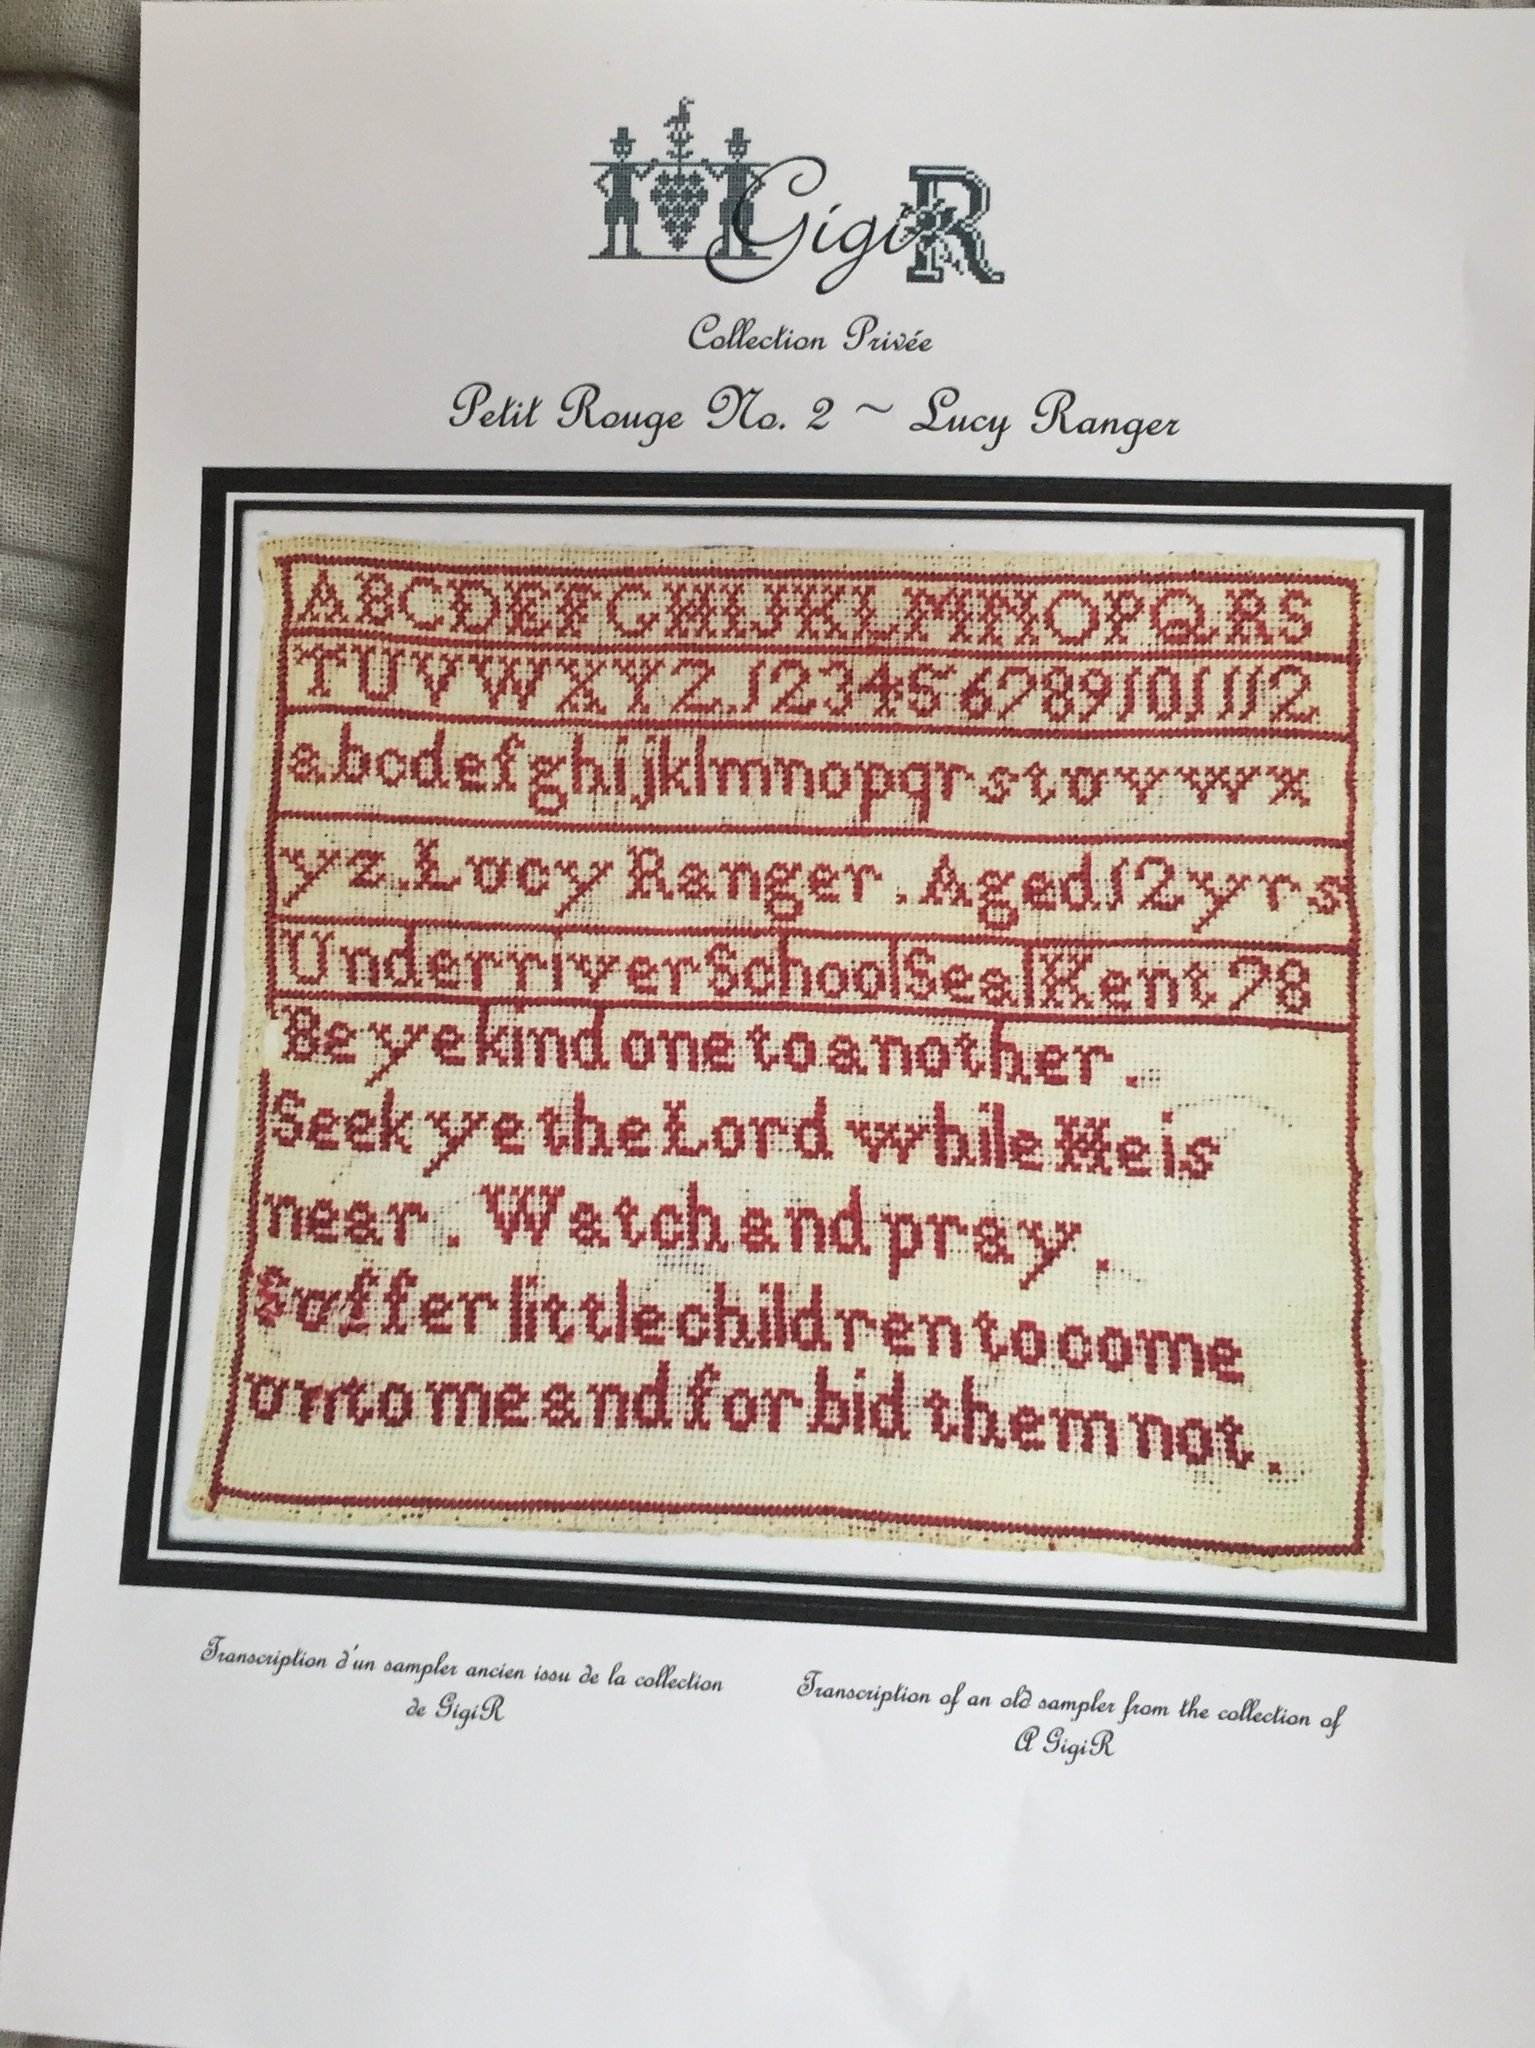 GigiR
Collection Privée
Petit Rouge No. 2 ~ Lucy Ranger
ABCDEFGHIJKLMNOPQRS
TUVWXYZ.123456789101112
abcdefghijklmnopqrstuvwx
yz.Lucy Ranger. Aged 12 yrs
Underriver School Seal Kent 78
Be ye kind one to another.
Seek ye the Lord while He is
near. Watch and pray.
Suffer little children to come
unto me and forbid them not.
Transcription d'un sampler ancien issu de la collection
de GigiR
Transcription of an old sampler from the collection of
A GigiR